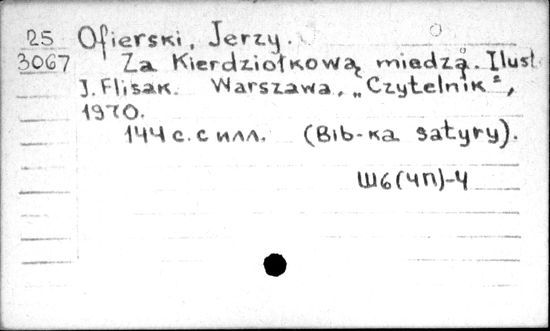 25
3067
Ofierski, Jerzy.
Za Kierdziołkową miedzą. Ilust.
J. Flisak. Warszawa, „Czytelnik",
1970.
144 с. с илл. (Bib-ka satyry).
Ш6(4П)-4